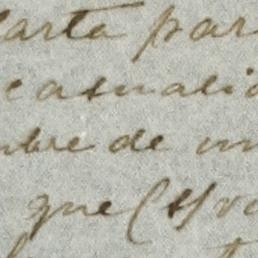 carta par
casuali
mbre de un
que (